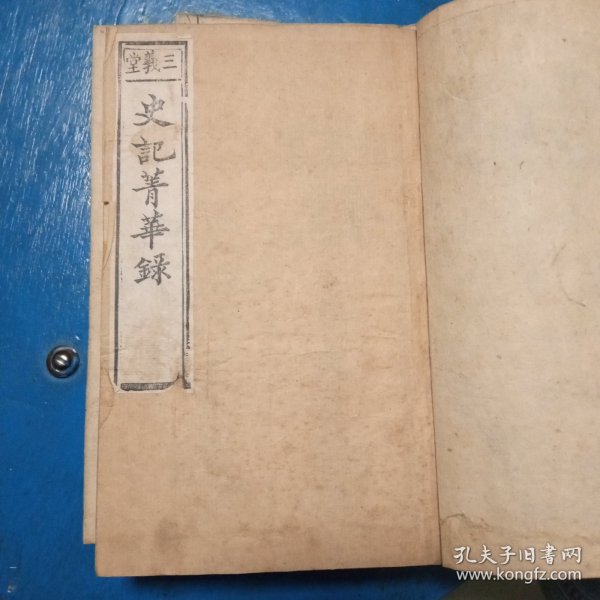 三義堂
史記菁華錄
孔夫子旧書网
www.kongfz.com